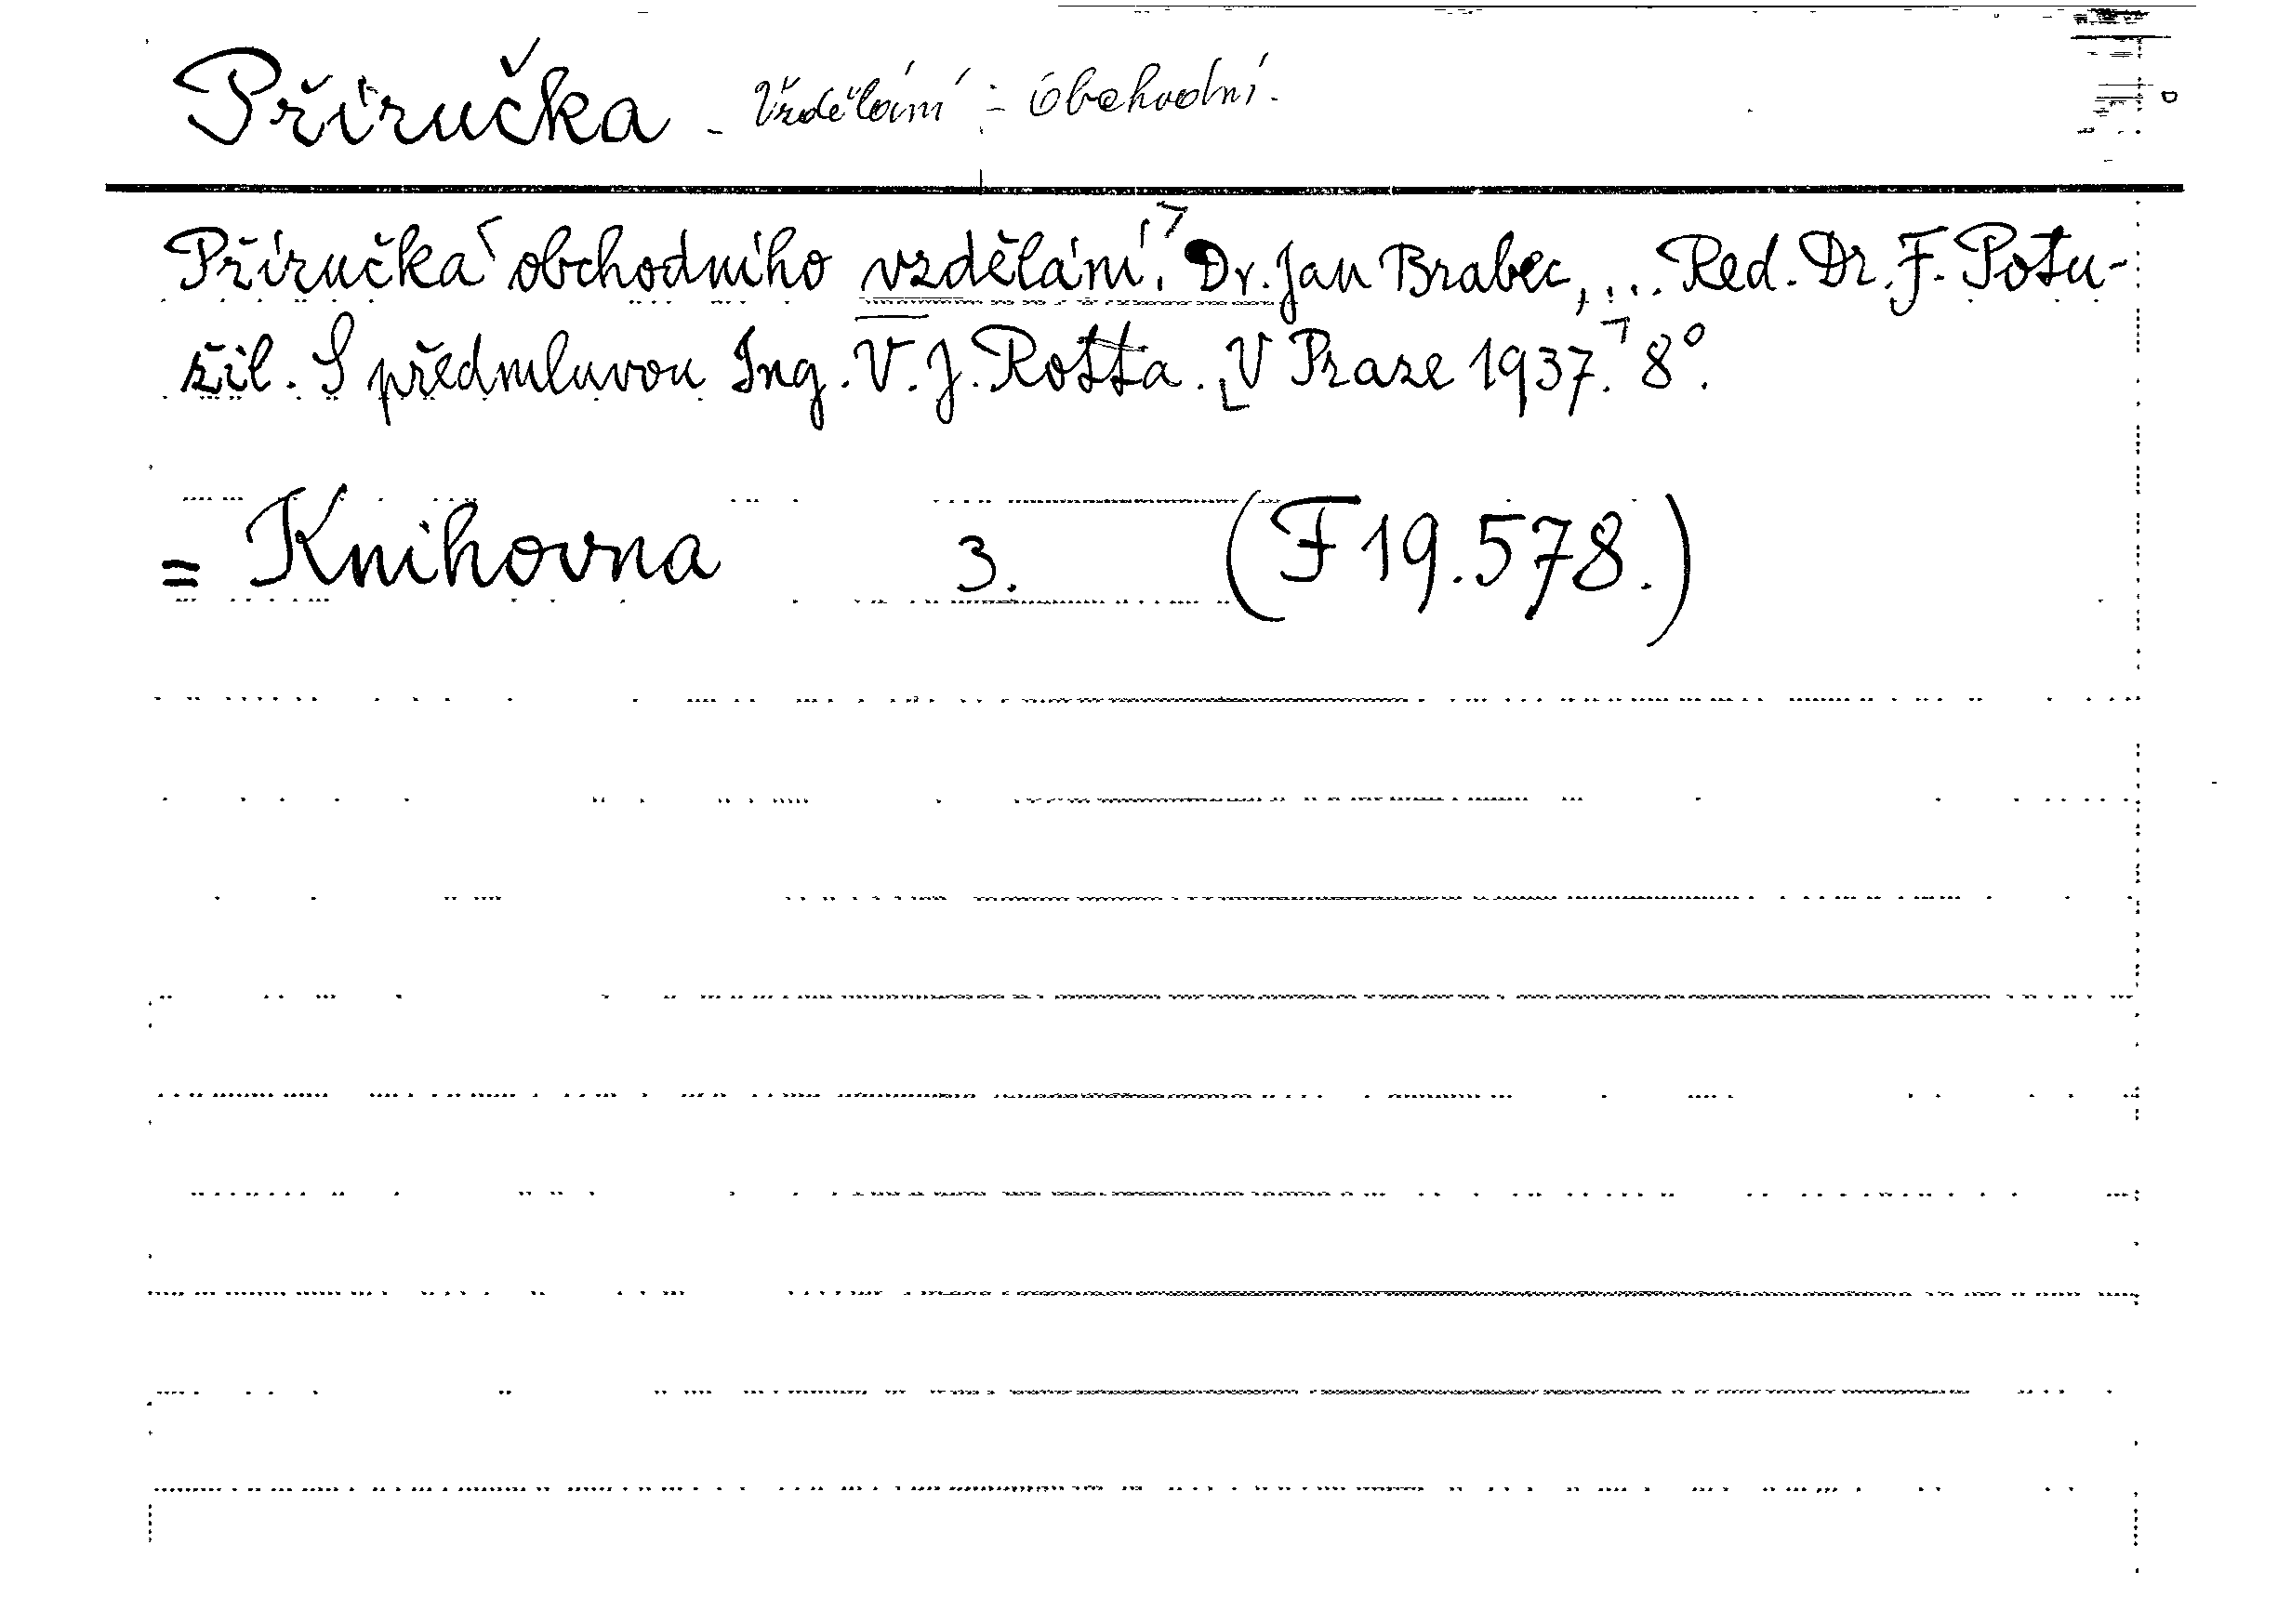 Příručka - Vzdělání - obchodní.
Příručka obchodního vzdělání. Dr. Jan Brabec, ... Red. Dr. F. Potu-
žil. S předmluvou Ing. V. J. Rotta. V Praze 1937. 8°.
= Knihovna 3. (F 19.578.)